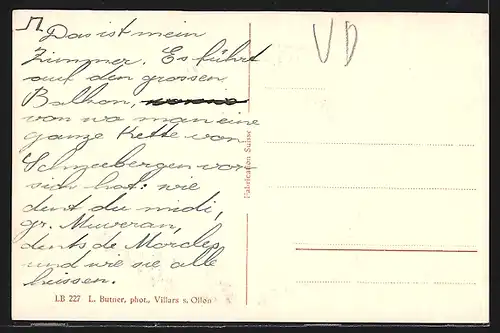 Das ist mein
Zimmer. Es führt
auf den grossen
Balkon,
von wo man eine
ganze Kette von
Schneebergen vor
sich hat: wie
dent du midi,
gr. Muveran,
dents de Morcles
und wie sie alle
heissen.
VD
Fabrication Suisse
LB 227 L. Butner, phot., Villars s. Ollon